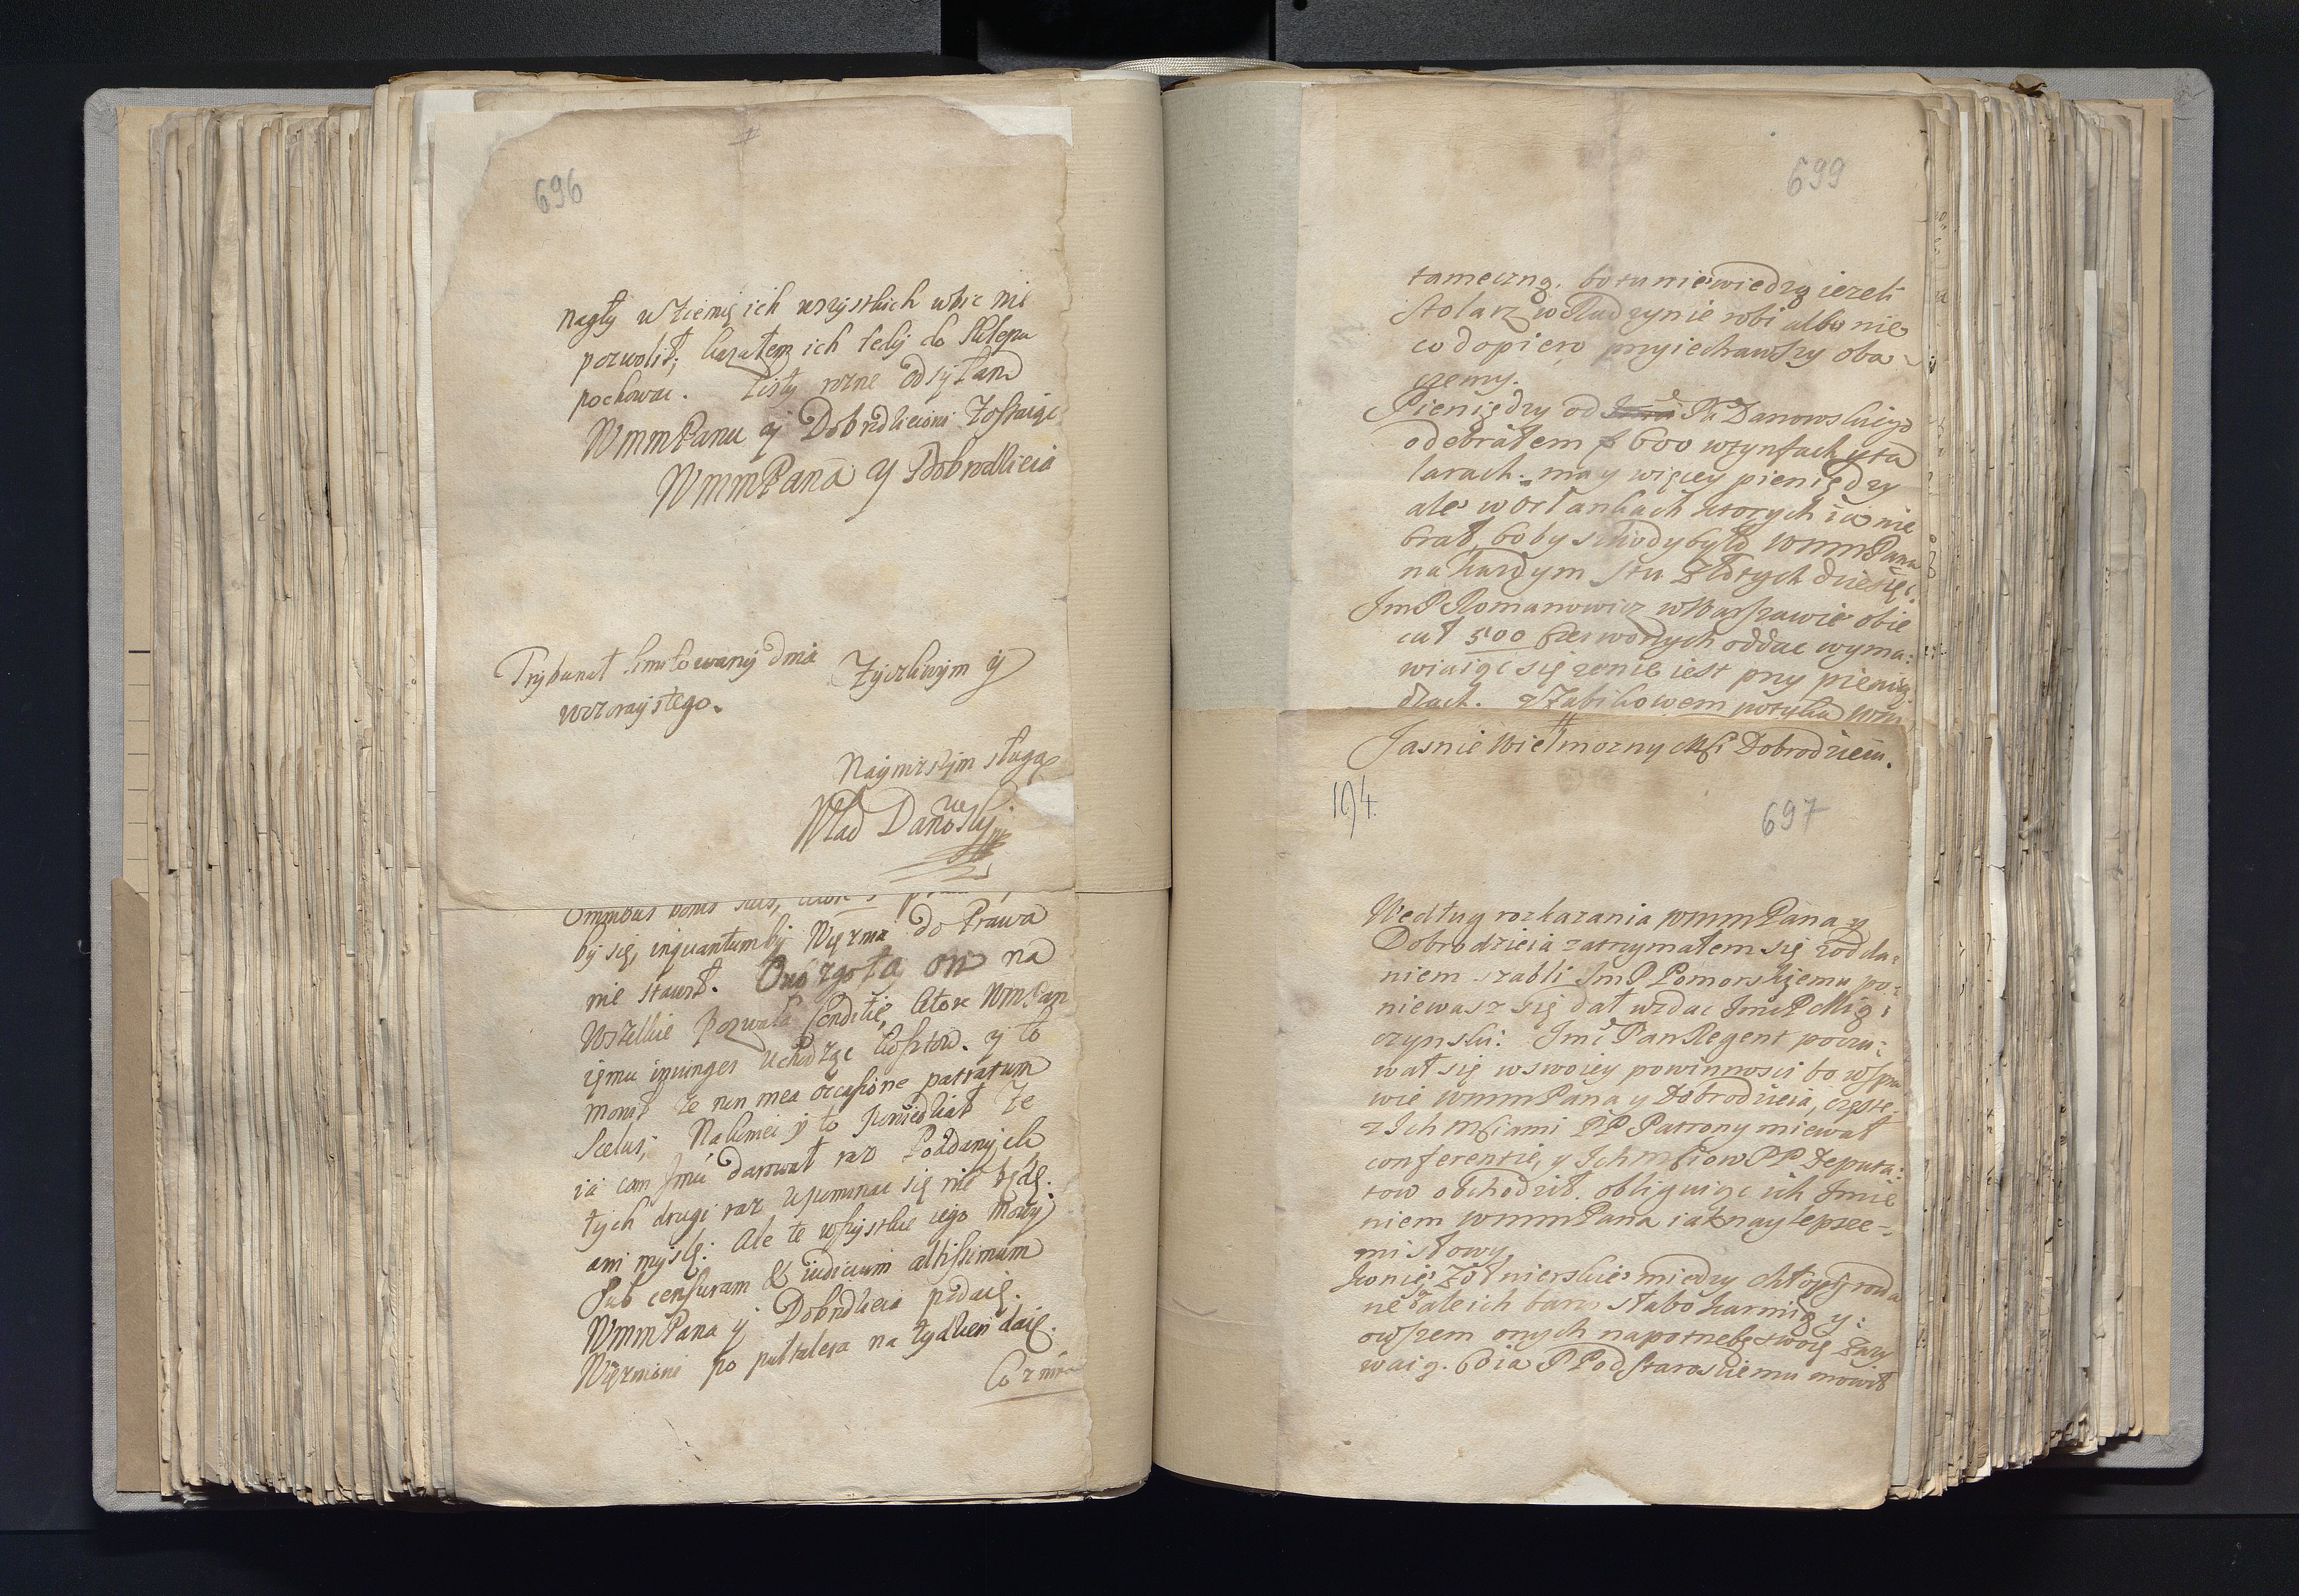 696
nagły w Ziemię ich wszystkich wbic nie
pozwolił; kazałem ich tedy do Sklepu
pochowac. Listy rozne odsyłam
WmmPanu y Dobrodzieiowi Zostaiąc
WmmPana y Dobrodzieia
Trybunał limitowany dnia
wczorayszego.
Zyczliwym y
Nayniższym sługą
Wład Danowsky
Omnibus bonis suis,
by się, inquantumby Więznia do Prawa
nie stawił. Owo zgoła on na
wszelkie pozwala Conditie, ktore WmPan
iemu iniunges uchodząc kosztow. y to
mowił ze non mea occasione patratum
Scelus; Nakoniec y to powiedział Ze
ia com Jmu darował raz Poddanych
tych drugi raz upominac się nie będę.
ani myslę: Ale te wszystkie iego mowy
Sub censuram & iudicium altissimum
WmmPana y Dobrodzieia podaię.
Więzniowi po pułtalera na tydzien daię.
699
tameczną. bo tu niewiedzą iezeli
Stolarz w Radzynie robi albo nie
co dopiero przyiechawszy oba
czemy.
Pieniędzy od Pa Danowskiego
odebrałem f 600 w tynfach y ta
larach. ma y więcey pieniędzy
ale w ortankach ktorych ia nie
brał, bo by szkody było WmmPana
na kazdym stu Złotych dziesięć.
JmP Romanowicz w Warszawie obie
cał 500 Czerwonych oddac wyma:
wiaiąc się ze nie iest przy pienią
dzach. z Zabikowem potyka Wm
Jasnie Wielmozny Msci Dobrodzieiu.
194.
697
Według rozkazania WmmPana y
Dobrodzieia zatrzymałem się z odda:
niem szabli JmP Pomorskiemu po:
niewasz się dał wzdac JmcP Mią:
czynski: Jmc Pan Regent poczu:
wał się w swoiey powinnosci bo w spra
wie WmmPana y Dobrodzieia, częste
z Ich Msciami PP Patrony miewał
conferentie, y Ich Msciow PP Deputa:
tow obchodził. obliguiąc ich Jmie
niem WmmPana iak naylepsze-
mi słowy.
Konie Zołnierskie miedzy chłopy rozda
ne ale ich barzo słabo karmią y:
owszem onych na potrzebę swoię Zazy
waią. bo ia P Podstarosciemu mowił